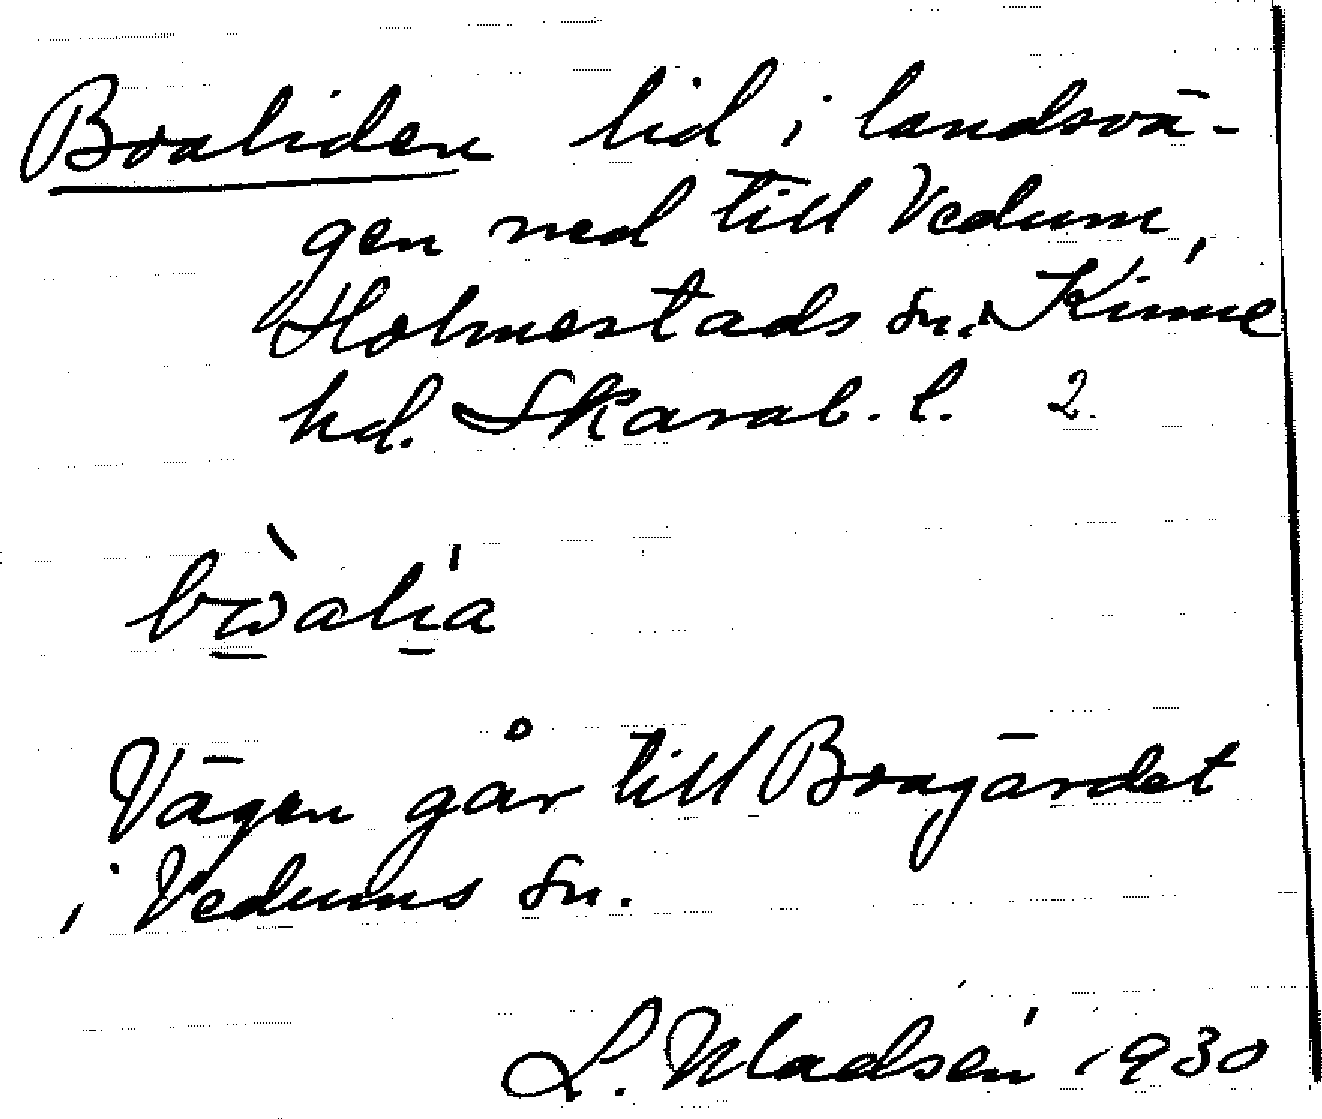 Boaliden lid i landsvä-
gen ned till Vedum,
Holmestads sn. Kinne
hd. Skarab. l. 2.
Vägen går till Boagärdet
i Vedums sn.
L. Madsén 1930